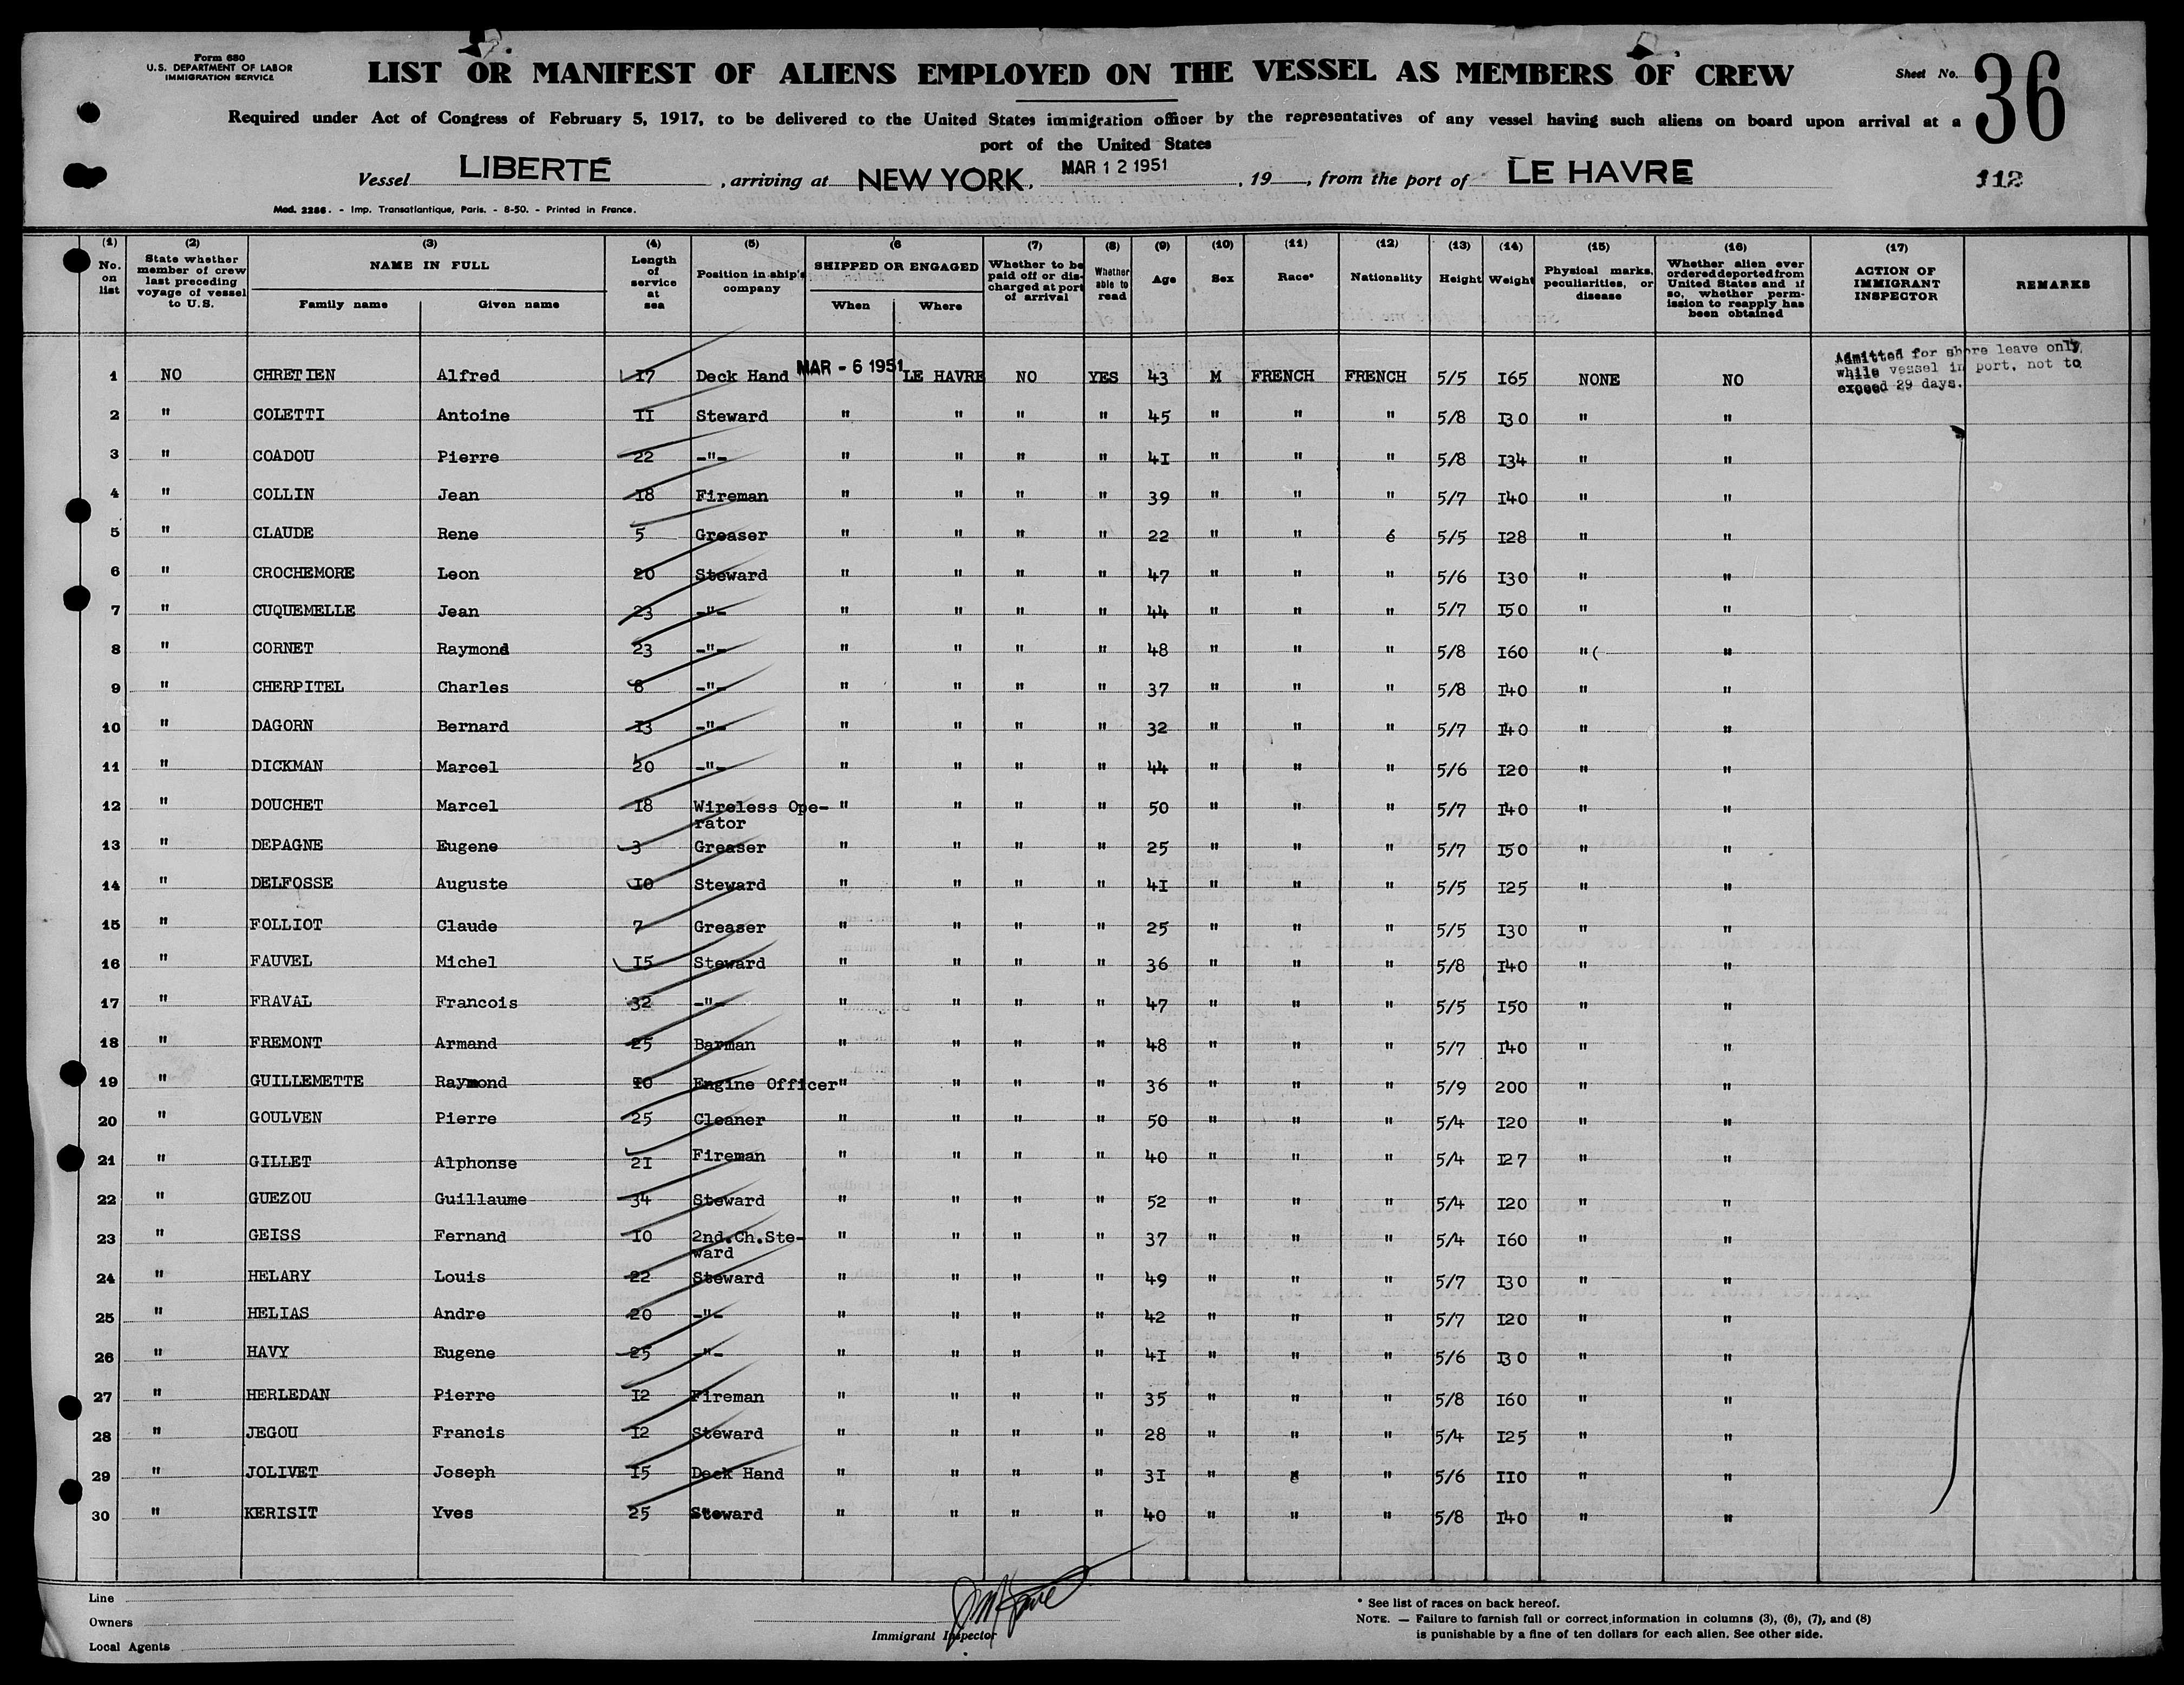 Form 680
U.S. DEPARTMENT OF LABOR
IMMIGRATION SERVICE
LIST OR MANIFEST OF ALIENS EMPLOYED ON THE VESSEL AS MEMBERS OF CREW
Sheet No. 36
Required under Act of Congress of February 5, 1917, to be delivered to the United States immigration officer by the representatives of any vessel having such aliens on board upon arrival at a
port of the United States
Vessel LIBERTÉ, arriving at NEW YORK, MAR 12 1951, 19__, from the port of LE HAVRE
112
Mod. 2286. - Imp. Transatlantique, Paris. - 8-50. - Printed in France.
(1) No. on list (2) State whether member of crew last preceding voyage of vessel to U.S. (3) NAME IN FULL Family name Given name (4) Length of service at sea (5) Position in ship's company (6 SHIPPED OR ENGAGED When Where (7) Whether to be paid off or discharged at port of arrival (8) Whether able to read (9) Age (10) Sex (11) Race* (12) Nationality (13) Height (14) Weight (15) Physical marks, peculiarities, or disease (16) Whether alien ever ordered deported from United States and if so, whether permission to reapply has been obtained (17) ACTION OF IMMIGRANT INSPECTOR REMARKS
1 NO CHRETIEN Alfred I7 Deck Hand MAR - 6 1951 LE HAVRE NO YES 43 M FRENCH FRENCH 5/5 I65 NONE NO
Admitted for shore leave only
while vessel in port, not to
exceed 29 days.
2 " COLETTI Antoine II Steward " " " " 45 " " " 5/8 I30 " "
3 " COADOU Pierre 22 -"- " " " " 4I " " " 5/8 I34 " "
4 " COLLIN Jean I8 Fireman " " " " 39 " " " 5/7 I40 " "
5 " CLAUDE Rene 5 Greaser " " " " 22 " " 6 5/5 I28 " "
6 " CROCHEMORE Leon 20 Steward " " " " 47 " " " 5/6 I30 " "
7 " CUQUEMELLE Jean 23 -"- " " " " 44 " " " 5/7 I50 " "
8 " CORNET Raymond 23 -"- " " " " 48 " " " 5/8 I60 "( "
9 " CHERPITEL Charles 8 -"- " " " " 37 " " " 5/8 I40 " "
10 " DAGORN Bernard I3 -"- " " " " 32 " " " 5/7 I40 " "
11 " DICKMAN Marcel 20 -"- " " " " 44 " " " 5/6 I20 " "
12 " DOUCHET Marcel I8 Wireless Ope- " " " " 50 " " " 5/7 I40 " "
rator
13 " DEPAGNE Eugene 3 Greaser " " " " 25 " " " 5/7 I50 " "
14 " DELFOSSE Auguste I0 Steward " " " " 4I " " " 5/5 I25 " "
15 " FOLLIOT Claude 7 Greaser " " " " 25 " " " 5/5 I30 " "
16 " FAUVEL Michel I5 Steward " " " " 36 " " " 5/8 I40 " "
17 " FRAVAL Francois 32 -"- " " " " 47 " " " 5/5 I50 " "
18 " FREMONT Armand 25 Barman " " " " 48 " " " 5/7 I40 " "
19 " GUILLEMETTE Raymond I0 Engine Officer" " " " 36 " " " 5/9 200 " "
20 " GOULVEN Pierre 25 Cleaner " " " " 50 " " " 5/4 I20 " "
21 " GILLET Alphonse 2I Fireman " " " " 40 " " " 5/4 I27 " "
22 " GUEZOU Guillaume 34 Steward " " " " 52 " " " 5/4 I20 " "
23 " GEISS Fernand I0 2nd.Ch.Ste- " " " " 37 " " " 5/4 I60 " "
ward
24 " HELARY Louis 22 Steward " " " " 49 " " " 5/7 I30 " "
25 " HELIAS Andre 20 -"- " " " " 42 " " " 5/7 I20 " "
26 " HAVY Eugene 25 -"- " " " " 4I " " " 5/6 I30 " "
27 " HERLEDAN Pierre I2 Fireman " " " " 35 " " " 5/8 I60 " "
28 " JEGOU Francis I2 Steward " " " " 28 " " " 5/4 I25 " "
29 " JOLIVET Joseph I5 Deck Hand " " " " 3I " " 5/6 II0 " "
30 " KERISIT Yves 25 Steward " " " " 40 " " " 5/8 I40 " "
Line
Owners
Local Agents
Immigrant Inspector
* See list of races on back hereof.
NOTE. — Failure to furnish full or correct information in columns (3), (6), (7), and (8)
is punishable by a fine of ten dollars for each alien. See other side.